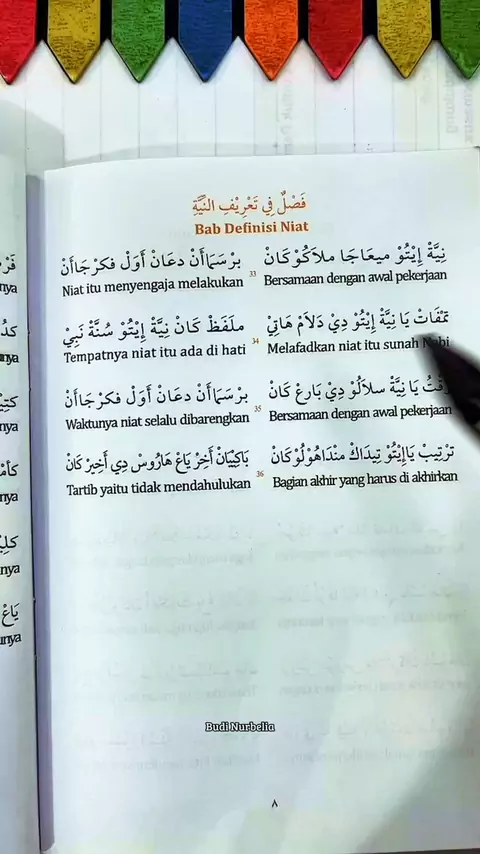 فَصْلٌ فِي تَعْرِيْفِ النِّيَّةِ
Bab Definisi Niat
نِيَّةْ إِيْتُوْ مِيعَاجَا ملَاكُوْكَانْ برْسَمَاأَنْ دعَانْ أَوَلْ فكرْجَاأَنْ
Niat itu menyengaja melakukan 33 Bersamaan dengan awal pekerjaan
تمْفَاتْ يَا نِيَّةْ إِيْتُوْ دِيْ دَلَامْ هَاتِيْ ملَفَظْ كَانْ نِيَّةْ إِيْتُوْ سُنَّةْ نَبِيْ
Tempatnya niat itu ada di hati 34 Melafadkan niat itu sunah
يَا نِيَّةْ سلَالُوْ دِيْ بَارعْ كَانْ برْسَمَاأَنْ دعَانْ أَوَلْ فكرْجَاأَنْ
Waktunya niat selalu dibarengkan 35 Bersamaan dengan awal pekerjaan
ترْتِيبْ يَاإِيْتُوْ تِيدَاكْ منْدَاهُوْلُوْكَانْ بَاكِيَانْ أَخِرْ يَاعْ هَارُوسْ دِي أَخِيرْ كَانْ
Tartib yaitu tidak mendahulukan 36 Bagian akhir yang harus di akhirkan
Budi Nurbelia
٨